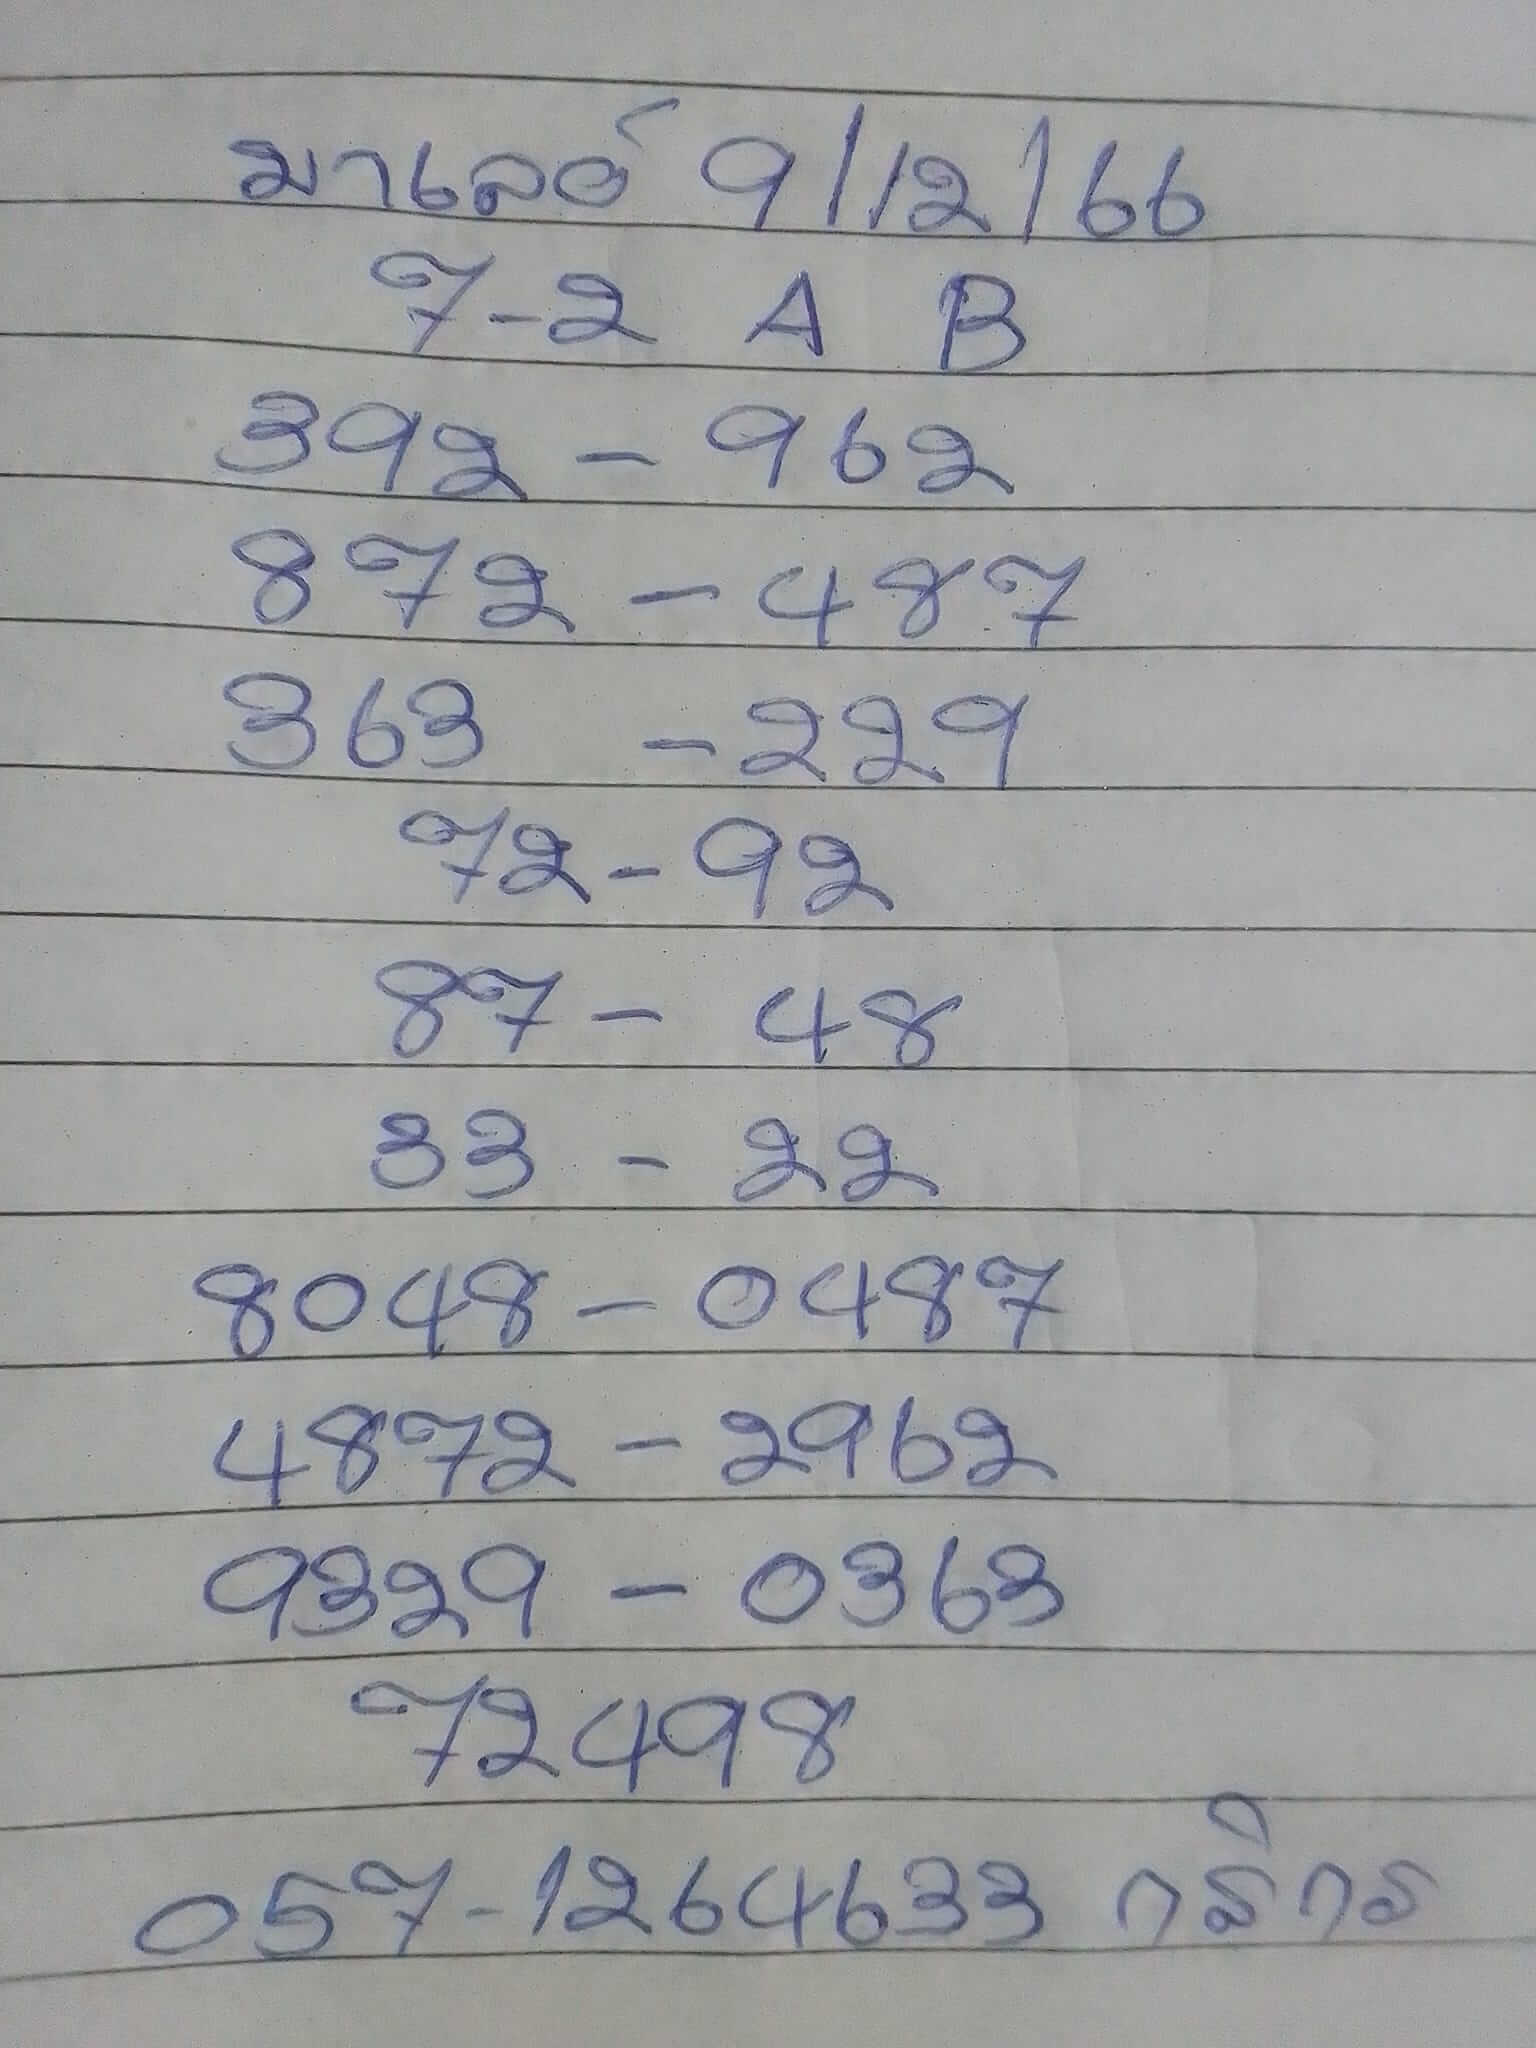 มาเลย์ 9/12/66
7-2 A B
392 - 962
872 - 487
363 - 229
72 - 92
87 - 48
33 - 22
8048 - 0487
4872 - 2962
9329 - 0363
72498
057-1264633